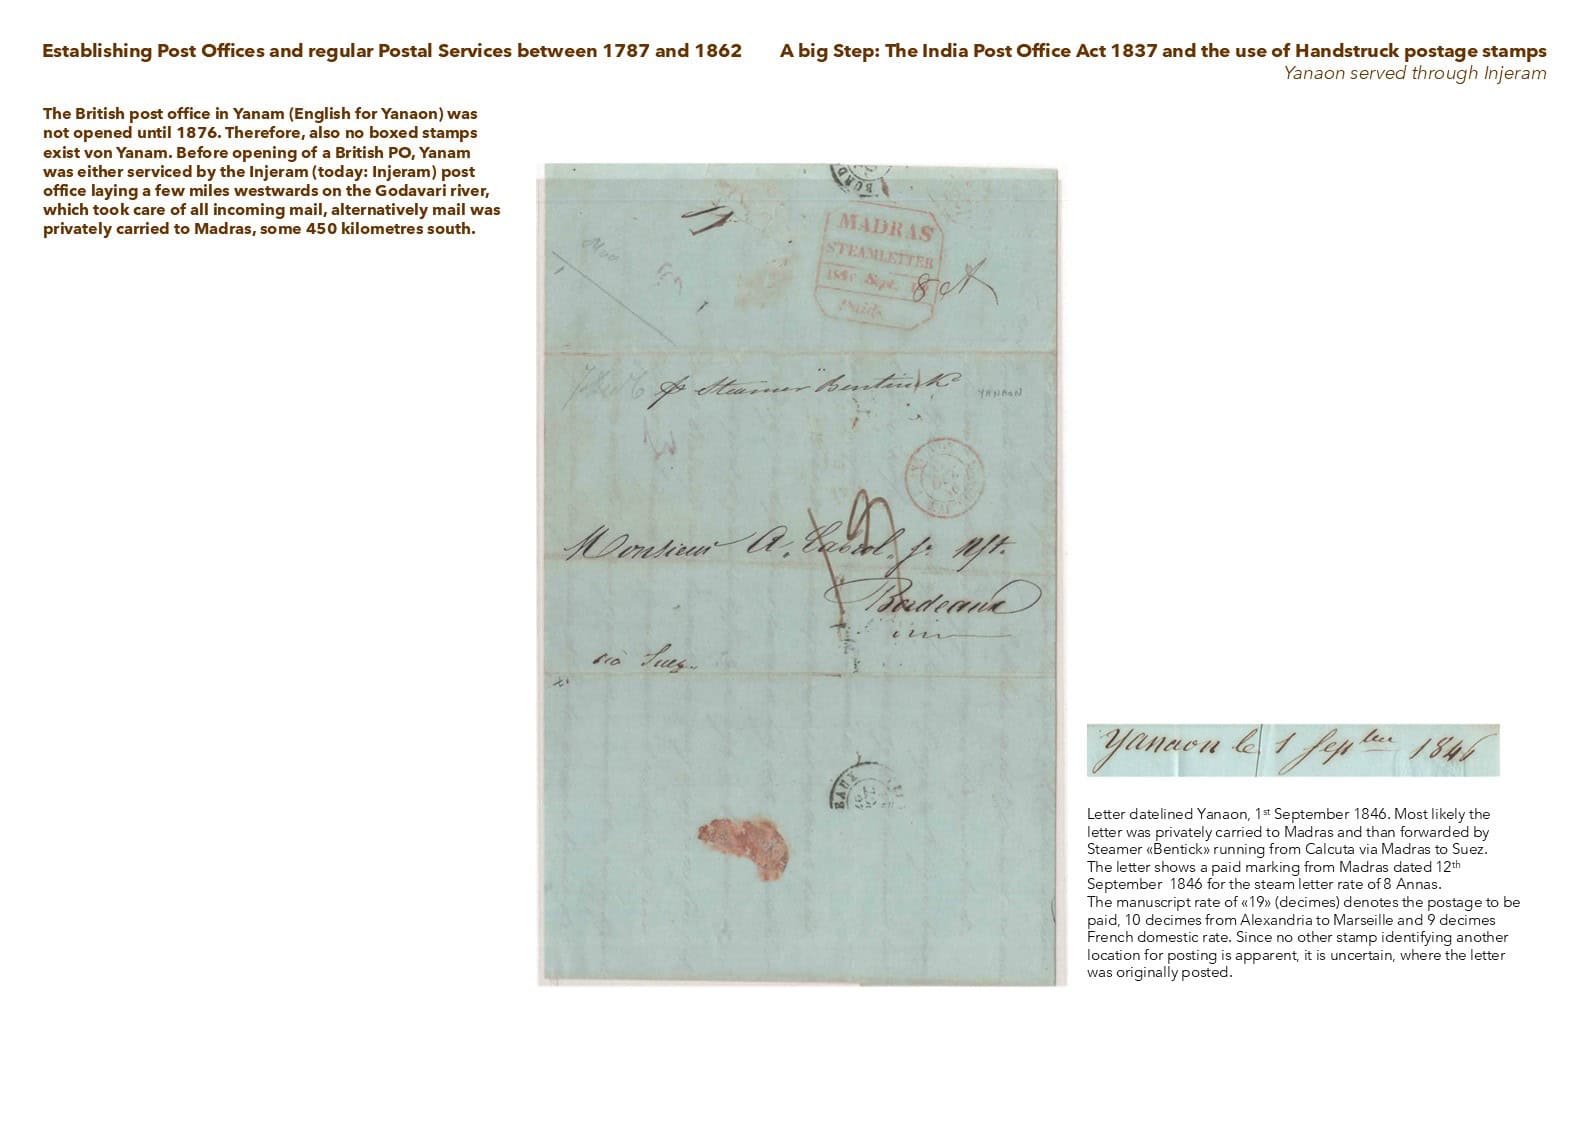 Establishing Post Offices and regular Postal Services between 1787 and 1862
A big Step: The India Post Office Act 1837 and the use of Handstruck postage stamps
Yanaon served through Injeram
The British post office in Yanam (English for Yanaon) was
not opened until 1876. Therefore, also no boxed stamps
exist von Yanam. Before opening of a British PO, Yanam
was either serviced by the Injeram (today: Injeram) post
office laying a few miles westwards on the Godavari river,
which took care of all incoming mail, alternatively mail was
privately carried to Madras, some 450 kilometres south.
MADRAS
STEAMLETTER
Sept.
Paid
8 A
Steamer "Bentinck"
YANAON
Monsieur A.
Bordeaux
via Suez
EAUX
Yanaon le 1 Septbre 1846
Letter datelined Yanaon, 1st September 1846. Most likely the
letter was privately carried to Madras and than forwarded by
Steamer «Bentick» running from Calcuta via Madras to Suez.
The letter shows a paid marking from Madras dated 12th
September 1846 for the steam letter rate of 8 Annas.
The manuscript rate of «19» (decimes) denotes the postage to be
paid, 10 decimes from Alexandria to Marseille and 9 decimes
French domestic rate. Since no other stamp identifying another
location for posting is apparent, it is uncertain, where the letter
was originally posted.